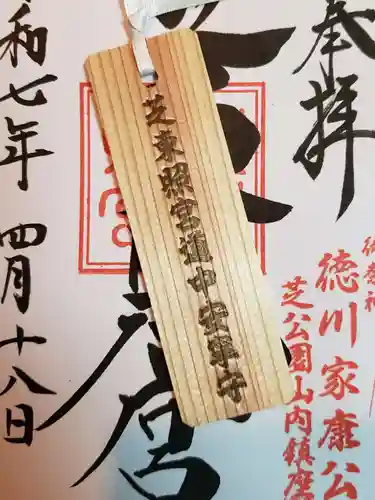 奉拝
御祭神
徳川家康公
芝公園山内鎮座
芝東照宮道中安全守
宮
令和七年 四月十八日